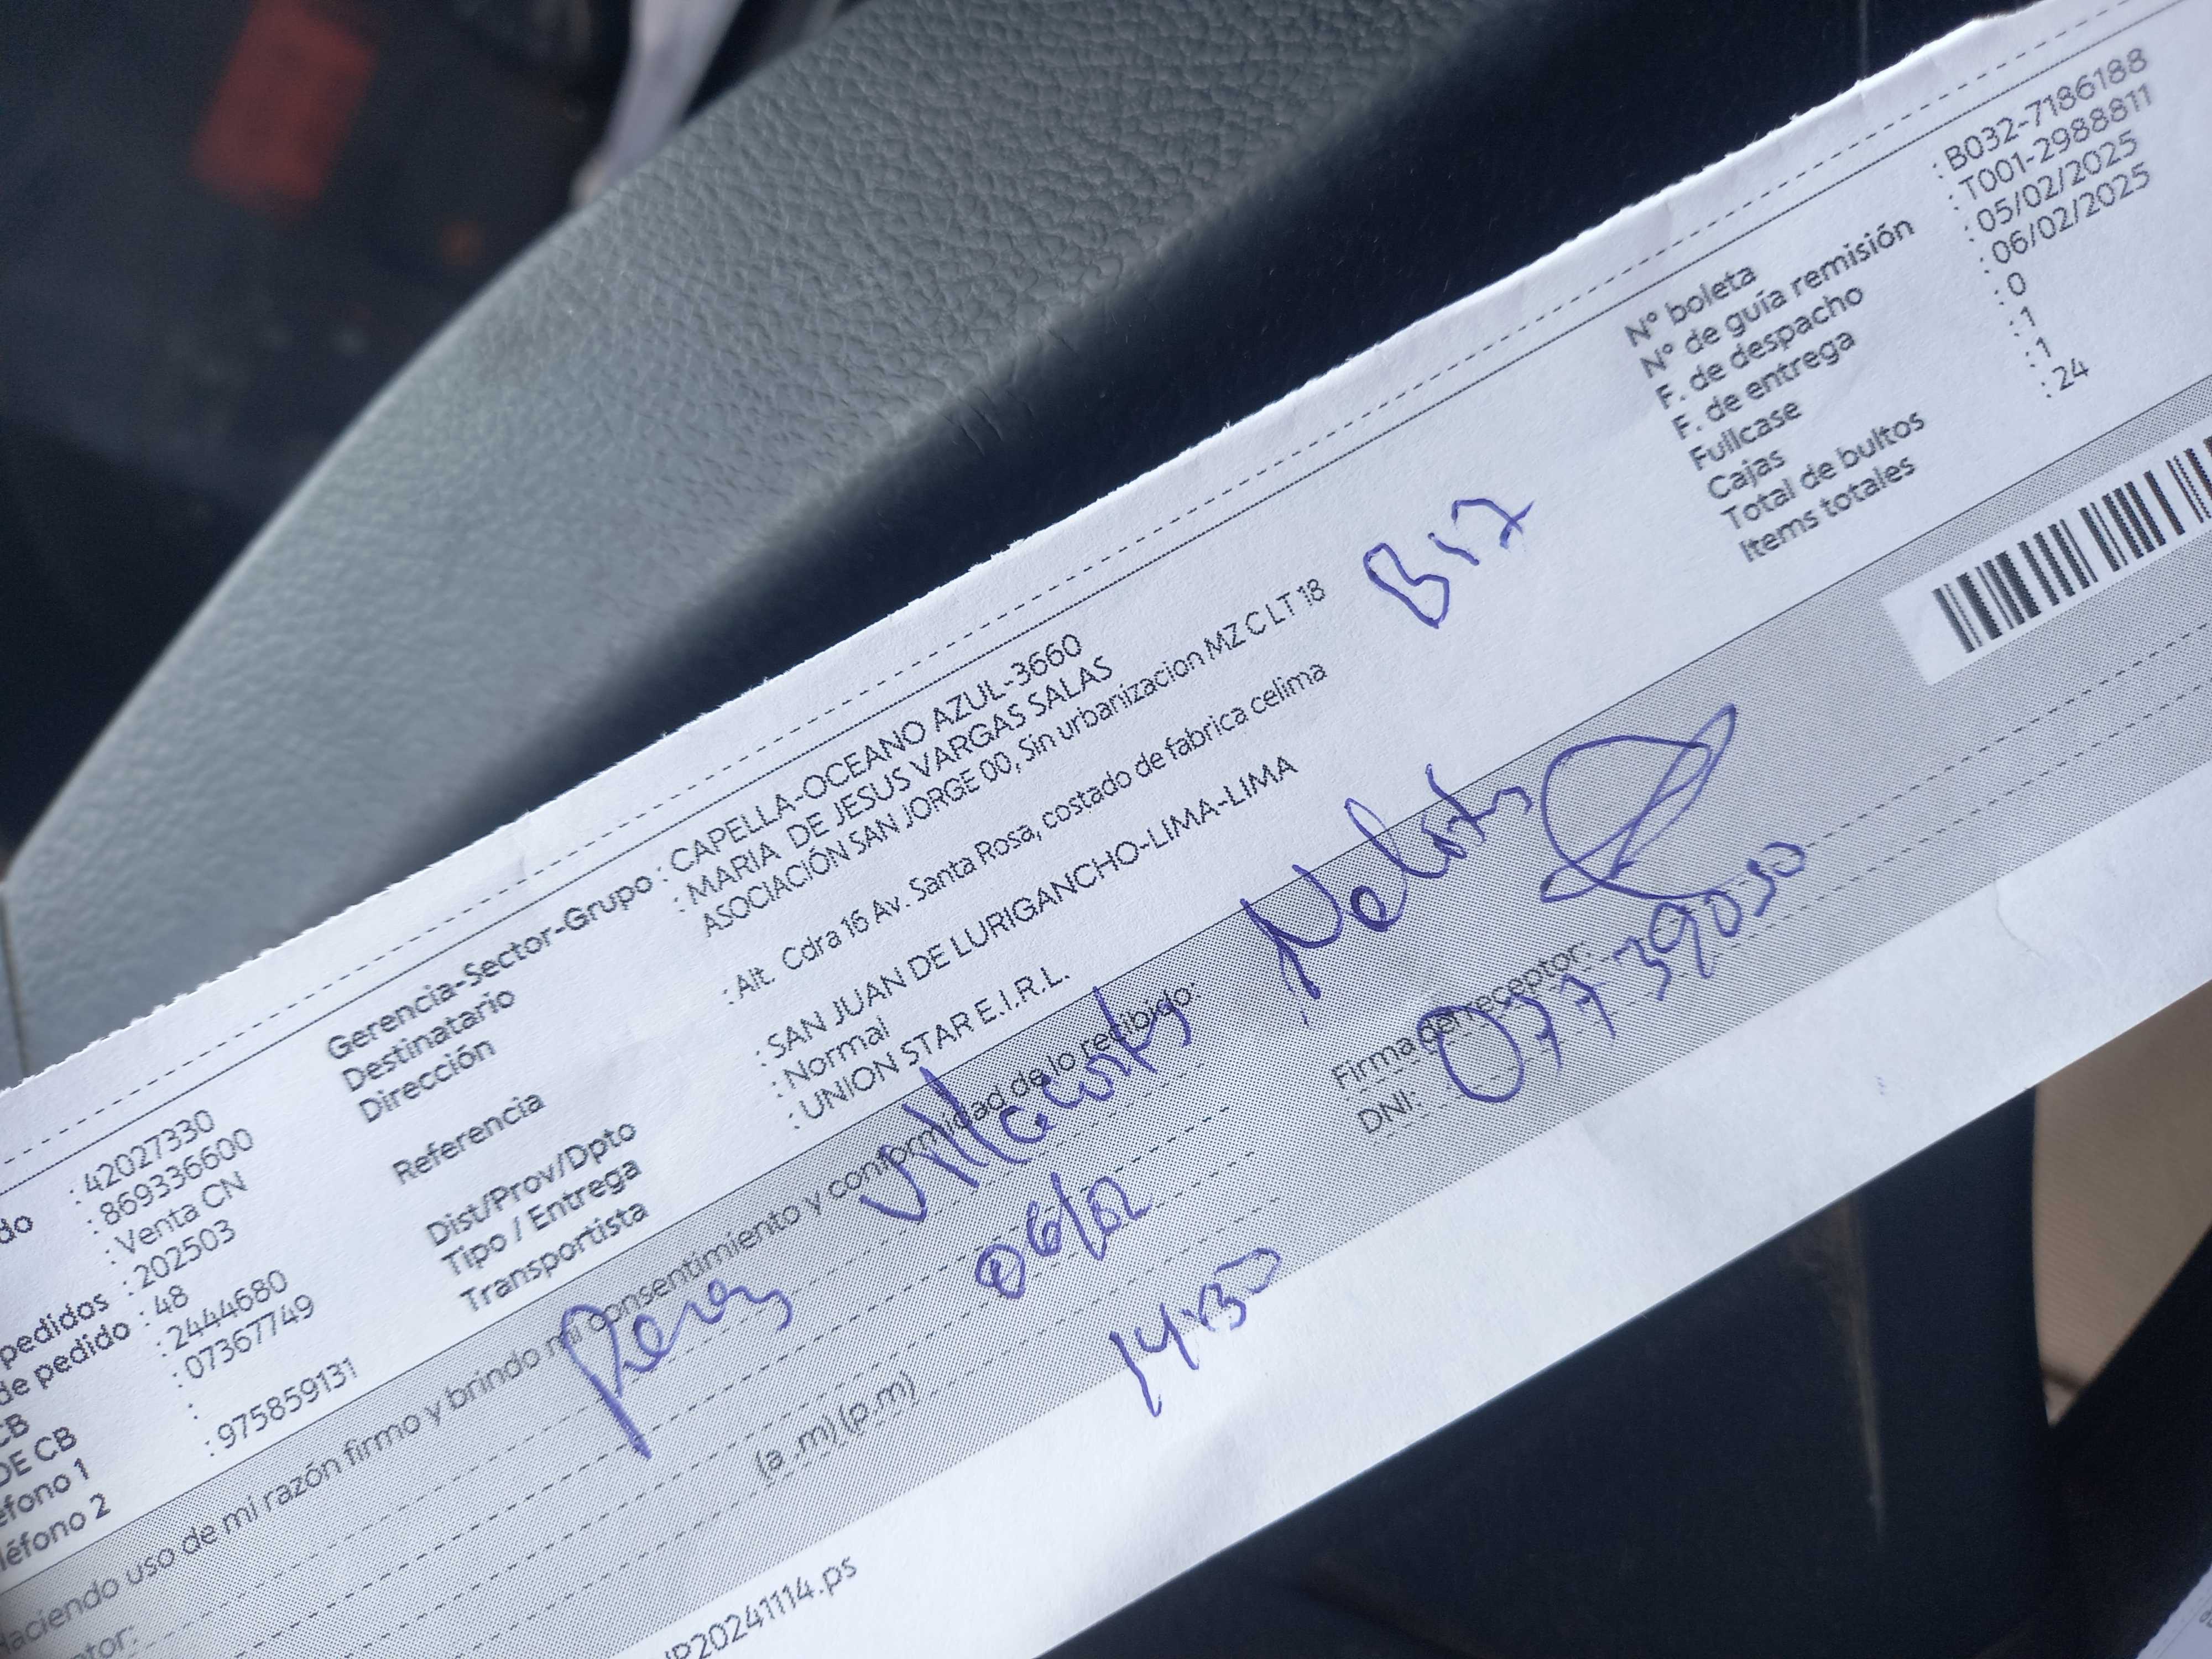 do : 42027330
: 869336600
: Venta CN
pedidos : 202503
de pedido : 48
CB : 2444680
DE CB : 07367749
éfono 1 :
léfono 2 : 975859131
Gerencia-Sector-Grupo : CAPELLA-OCEANO AZUL-3660
Destinatario : MARIA DE JESUS VARGAS SALAS
Dirección ASOCIACIÓN SAN JORGE 00, Sin urbanizacion MZ C LT 18
Referencia : Alt. Cdra 16 Av. Santa Rosa, costado de fabrica celima
Dist/Prov/Dpto : SAN JUAN DE LURIGANCHO-LIMA-LIMA
Tipo / Entrega : Normal
Transportista : UNION STAR E.I.R.L.
N° boleta : B032-7186188
N° de guía remisión : T001-2988811
F. de despacho : 05/02/2025
F. de entrega : 06/02/2025
Fullcase : 0
Cajas : 1
Total de bultos : 1
Items totales : 24
Haciendo uso de mi razón firmo y brindo mi consentimiento y conformidad de lo recibido:
ptor:
Perez
06/02
(a .m) (p.m)
14:30
Firma del receptor:
DNI: 07739030
IP20241114.ps